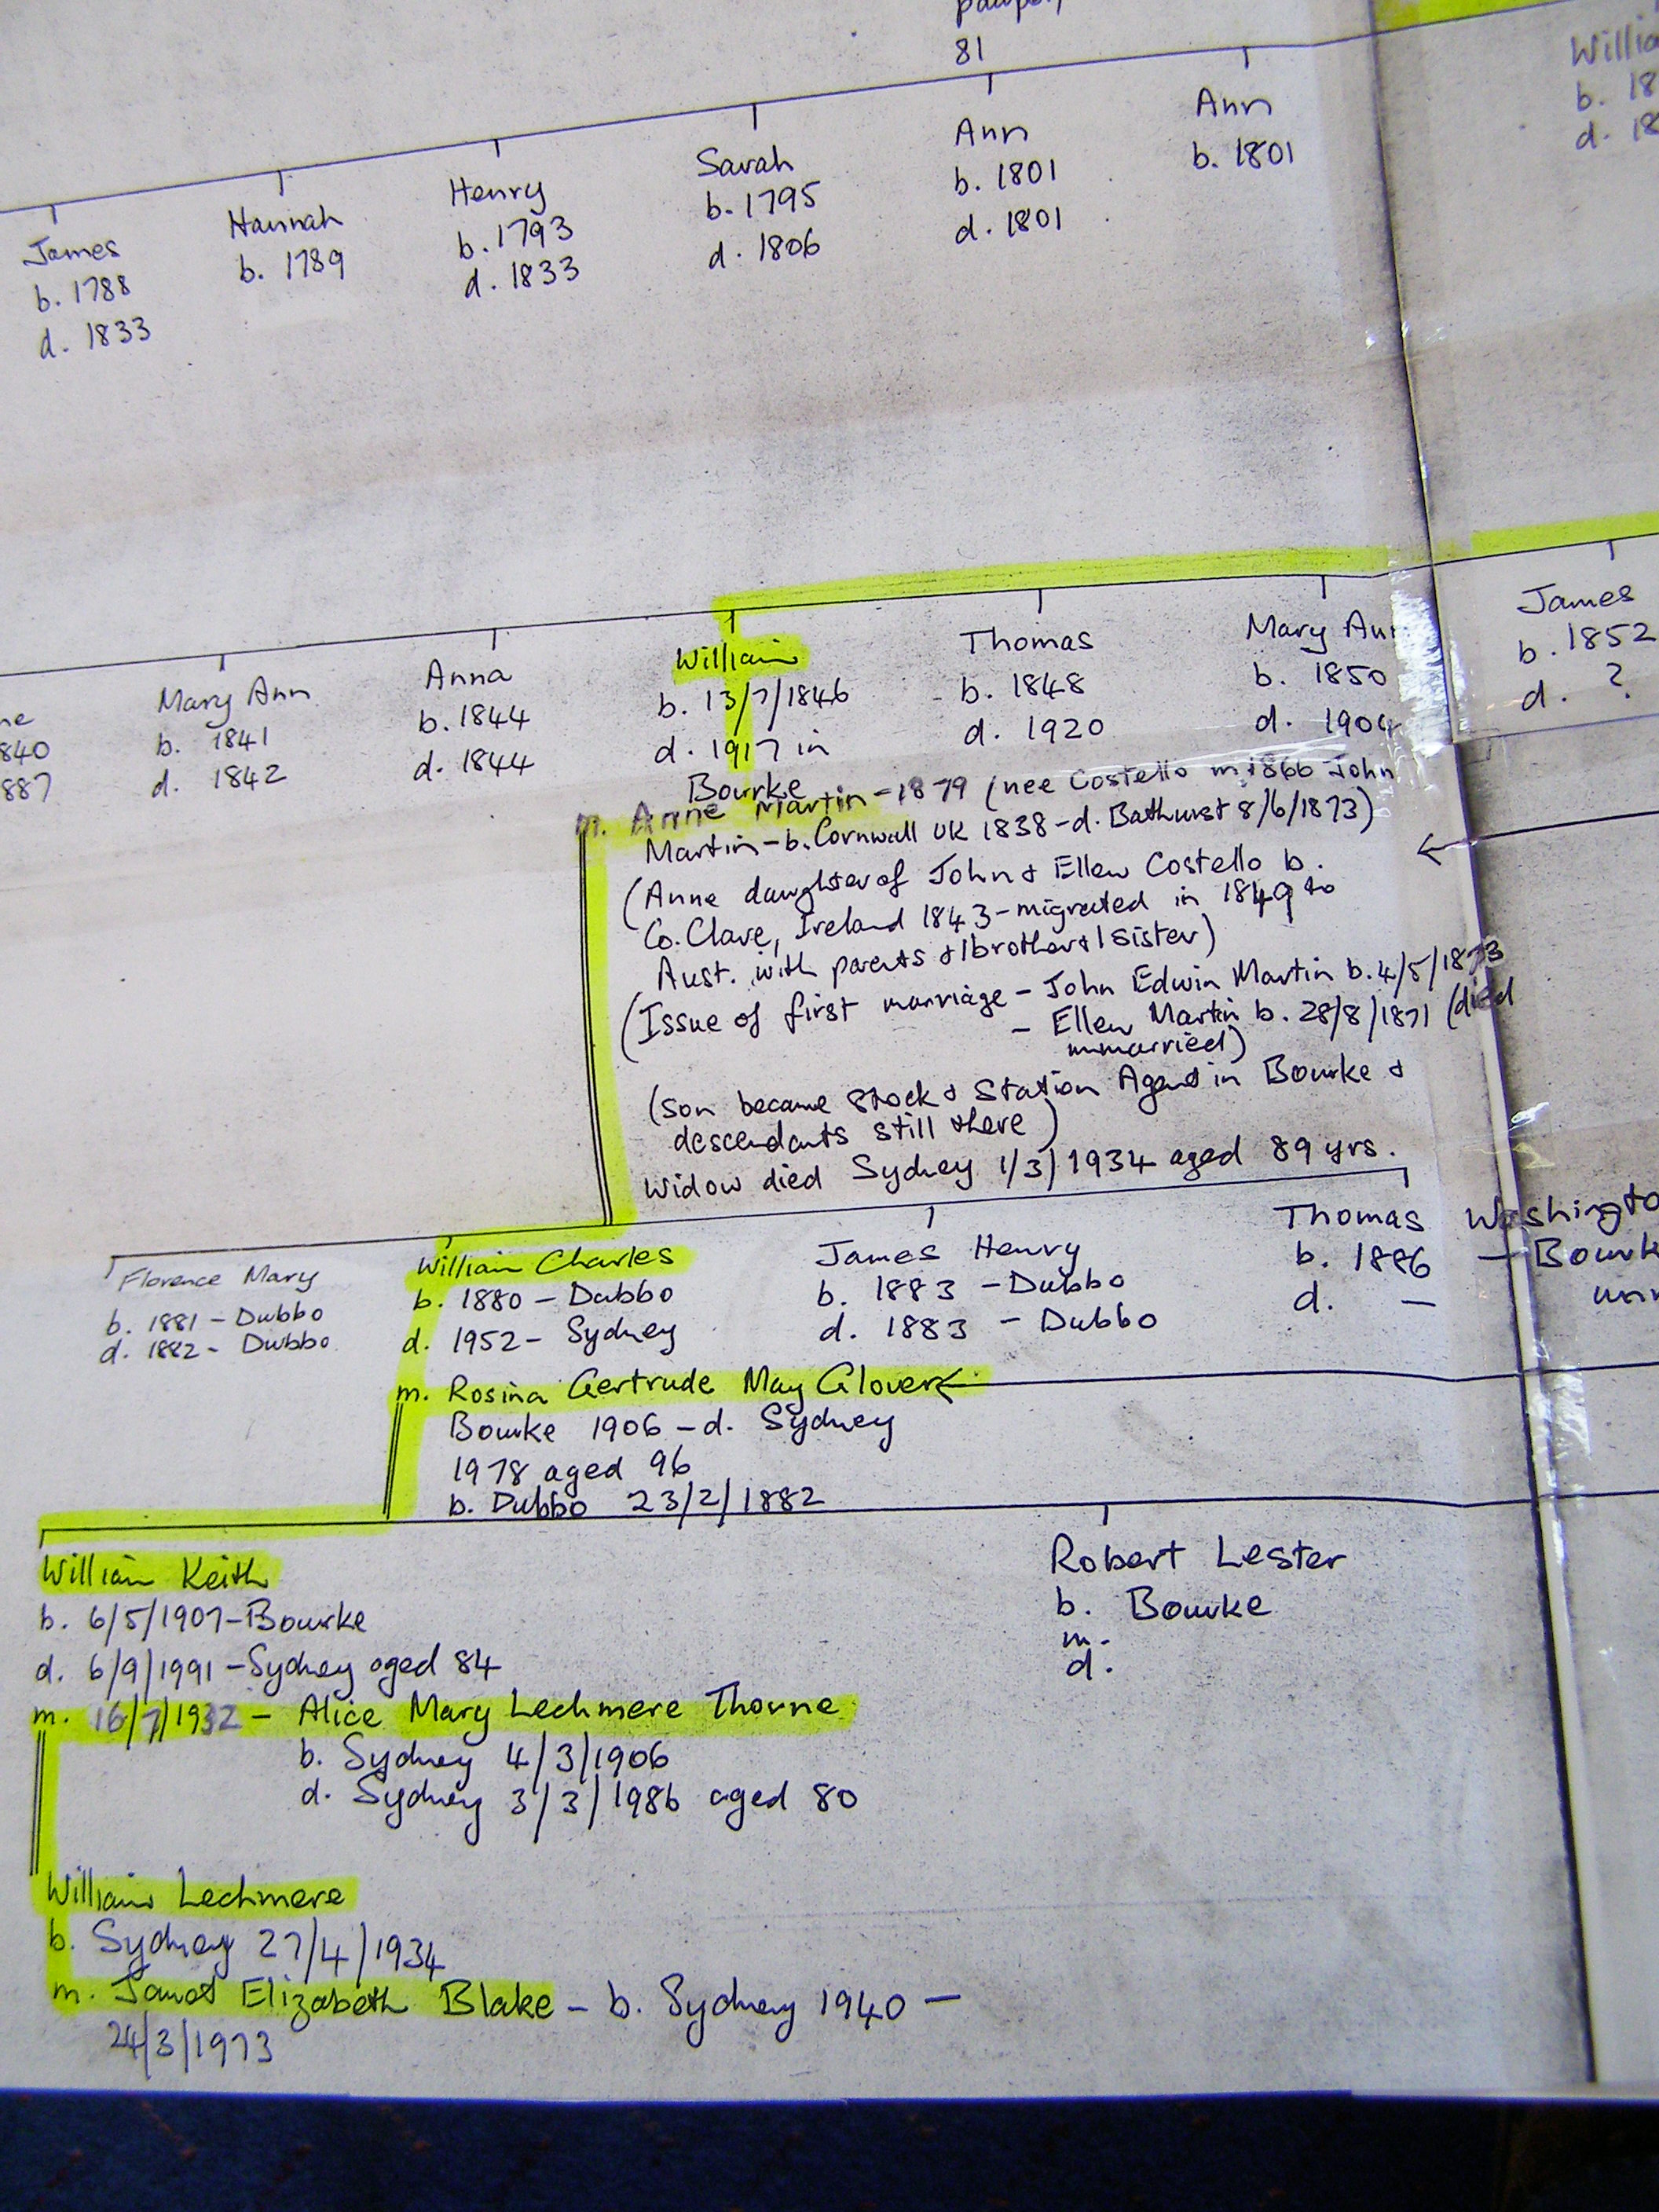 81
James
b. 1788
d. 1833
Hannah
b. 1789
Henry
b. 1793
d. 1833
Sarah
b. 1795
d. 1806
Ann
b. 1801
d. 1801
Ann
b. 1801
b. 18
d. 18
840
887
Mary Ann
b. 1841
d. 1842
Anna
b. 1844
d. 1844
William
b. 13/7/1846
d. 1917 in
Bourke
Thomas
b. 1848
d. 1920
Mary Ann
b. 1850
d. 1904
James
b. 1852
d. ?
m. Anne Martin - 1879 (nee Costello m 1866 John
Martin - b. Cornwall UK 1838 - d. Bathurst 8/6/1873)
(Anne daughter of John & Ellen Costello b.
Co. Clare, Ireland 1843 - migrated in 1849 to
Aust. with parents & 1 brother & 1 sister)
(Issue of first marriage - John Edwin Martin b. 4/5/1873
- Ellen Martin b. 28/8/1871 (died
unmarried)
(son became Stock & Station Agent in Bourke &
descendants still there)
Widow died Sydney 1/3/1934 aged 89 yrs.
Florence Mary
b. 1881 - Dubbo
d. 1882 - Dubbo
William Charles
b. 1880 - Dubbo
d. 1952 - Sydney
James Henry
b. 1883 - Dubbo
d. 1883 - Dubbo
Thomas Washingto
b. 1886 - Bourk
d. -
m. Rosina Gertrude May Glover
Bourke 1906 - d. Sydney
1978 aged 96
b. Dubbo 23/2/1882
William Keith
b. 6/5/1907 - Bourke
d. 6/9/1991 - Sydney aged 84
m. 16/7/1932 - Alice Mary Lechmere Thorne
b. Sydney 4/3/1906
d. Sydney 3/3/1986 aged 80
Robert Lester
b. Bourke
m.
d.
William Lechmere
b. Sydney 27/4/1934
m. Janet Elizabeth Blake - b. Sydney 1940 -
24/3/1973